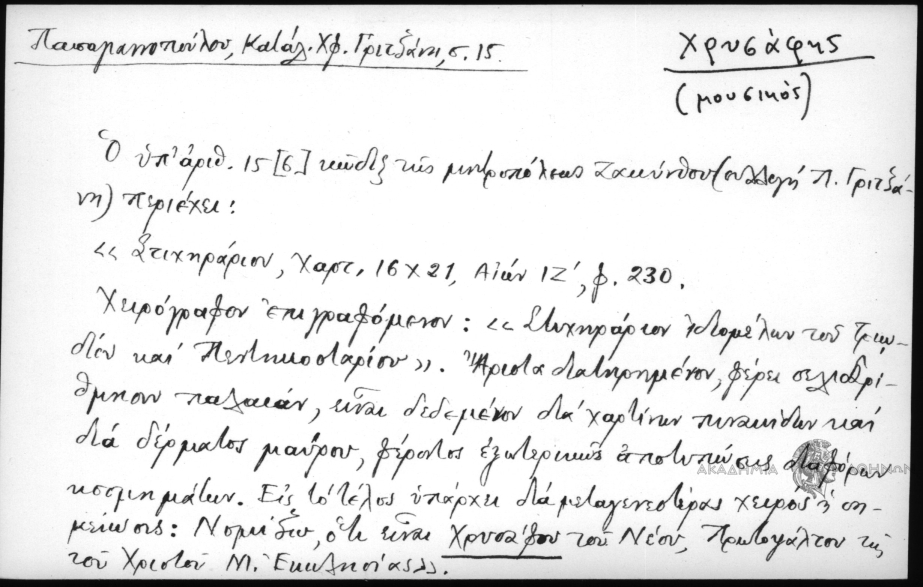 Παπαγιαννοπούλου, Κατάλ. Χφ. Γριτσάνη, σ. 15.
Χρυσάφης
(μουσικός)
Ὁ ὑπ' ἀριθ. 15 [6] κῶδιξ τῆς μητροπόλεως Ζακύνθου (συλλογή Π. Γριτσά-
νη) περιέχει:
«Στιχηράριον, Χαρτ. 16 × 21, Αἰών ΙΖ΄, φ. 230.
Χειρόγραφον ἐπιγραφόμενον: «Στιχηράριον ἰδιομέλων τοῦ Τριω-
δίου καί Πεντηκοσταρίου». Ἄριστα διατηρημένον, φέρει σελιδαρί-
θμησιν παλαιάν, εἶναι δεδεμένον διά χαρτίνων πινακίδων καί
διά δέρματος μαύρου, φέροντος ἐξωτερικῶς ἀποτυπώσεις διαφόρων
κοσμημάτων. Εἰς τό τέλος ὑπάρχει διά μεταγενεστέρας χειρός ἡ ση-
μείωσις: Νομίζω, ὅτι εἶναι Χρυσάφου τοῦ Νέου, Πρωτοψάλτου τῆς
τοῦ Χριστοῦ Μ. Ἐκκλησίας».
ΑΚΑΔΗΜΙΑ ΑΘΗΝΩΝ